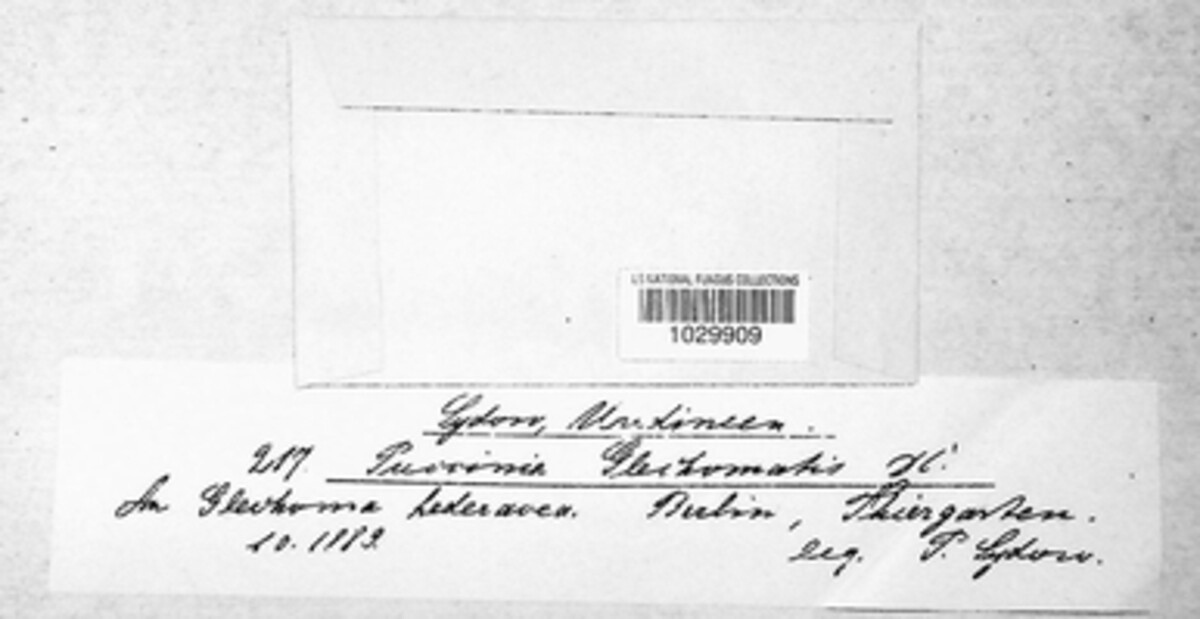 U.S NATIONAL FUNGUS COLLECTIONS
1029909
Sydow, Uredineen.
217. Puccinia Glechomatis
An Glechoma hederacea. Berlin, Thiergarten.
10. 1889. Leg. P. Sydow.